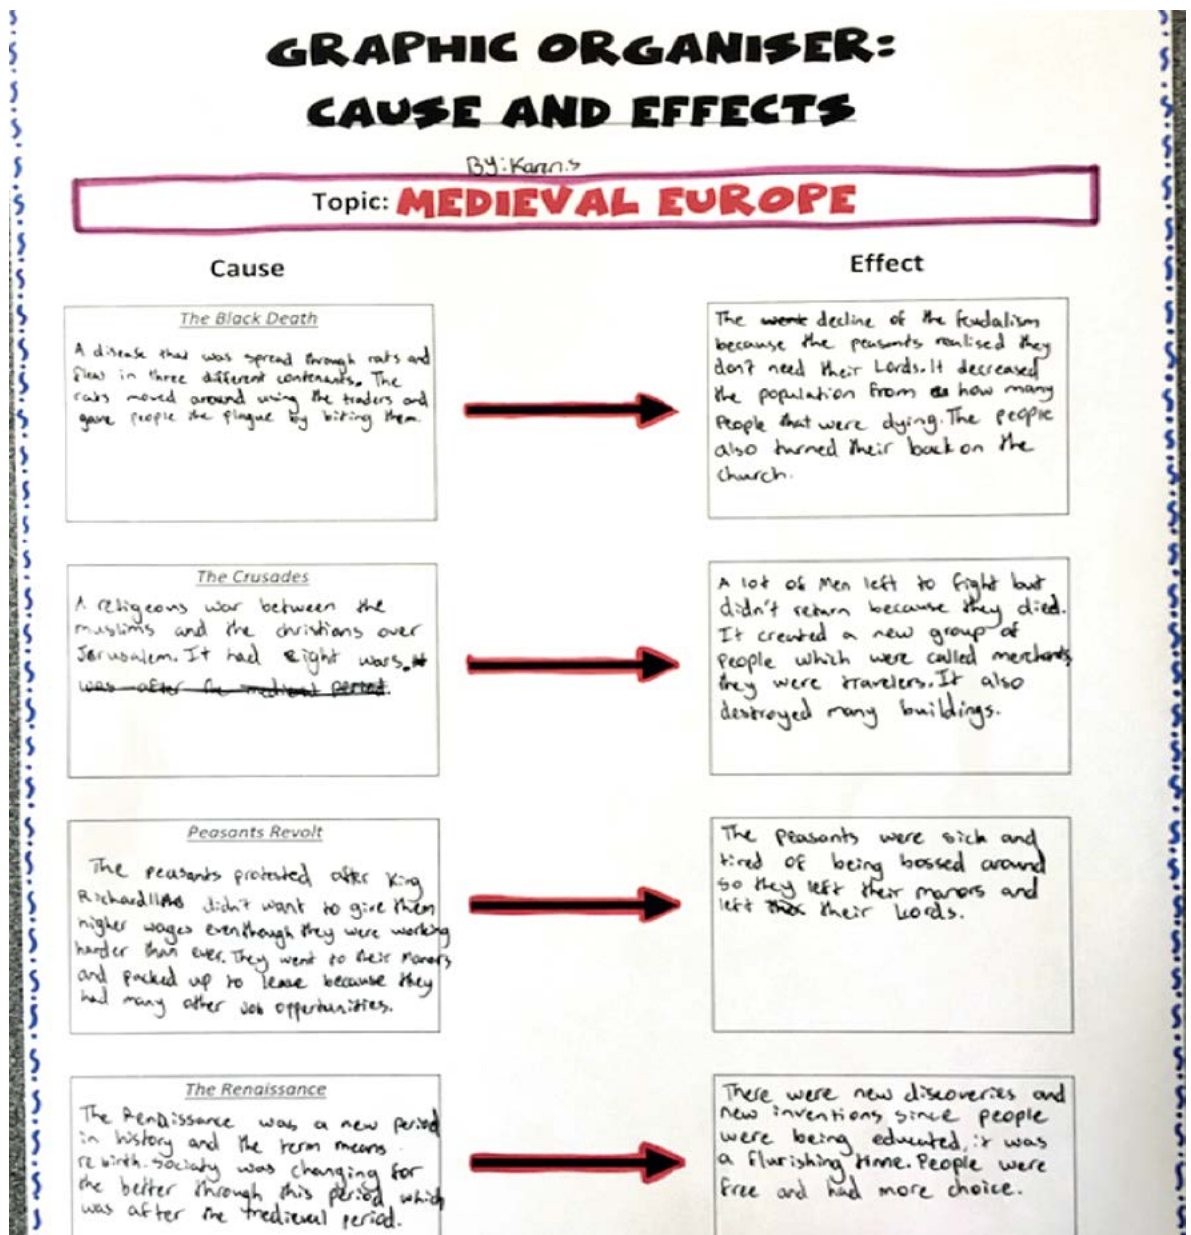 GRAPHIC ORGANISER:
CAUSE AND EFFECTS
BY: Karen.S
Topic: MEDIEVAL EUROPE
Cause
Effect
The Black Death
A disease that was spread through rats and
fleas in three different contenants. The
rats moved around using the traders and
gave people the plague by biting them.
The went decline of the feudalism
because the peasants realised they
don't need their Lords. It decreased
the population from how many
people that were dying. The people
also turned their back on the
church.
The Crusades
A religeous war between the
muslims and the christians over
Jerusalem. It had eight wars. It
was after the medieval period.
A lot of Men left to fight but
didn't return because they died.
It created a new group of
people which were called merchants,
they were travelers. It also
destroyed many buildings.
Peasants Revolt
The peasants protested after King
Richard II didn't want to give them
higher wages eventhough they were working
harder than ever. They went to their manors
and packed up to leave because they
had many other Job oppertunities.
The Peasants were sick and
tired of being bossed around
so they left their manors and
left their Lords.
The Renaissance
The Renaissance was a new period
in history and the term means
rebirth. Society was changing for
the better through this period which
was after the medieval period.
There were new discoveries and
new inventions, since people
were being educated, it was
a flurishing time. People were
free and had more choice.